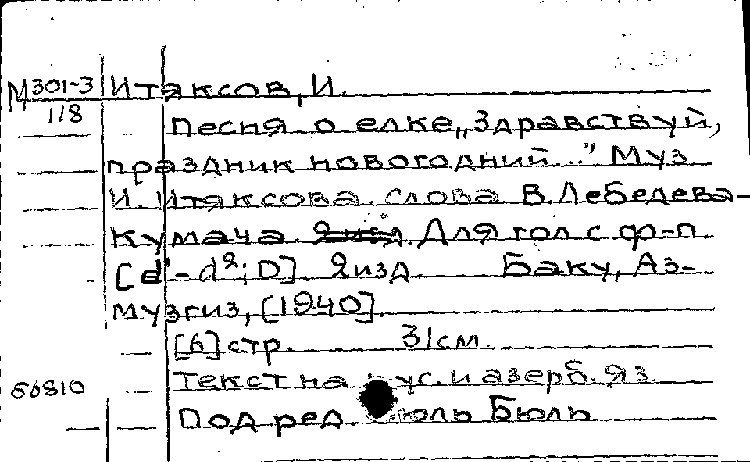 М301-3 Итаксов, И.
118 Песня о елке „Здравствуй,
праздник новогодний..." Муз
И. Итаксова. слова В. Лебедева-
Кумача. Для гол с ф-п.
[d¹-d²; D] 2изд. Баку, Аз-
музгиз, [1940].
[6] стр. 31см.
Текст на рус. и азерб. яз
56810
Под ред. Бюль Бюль